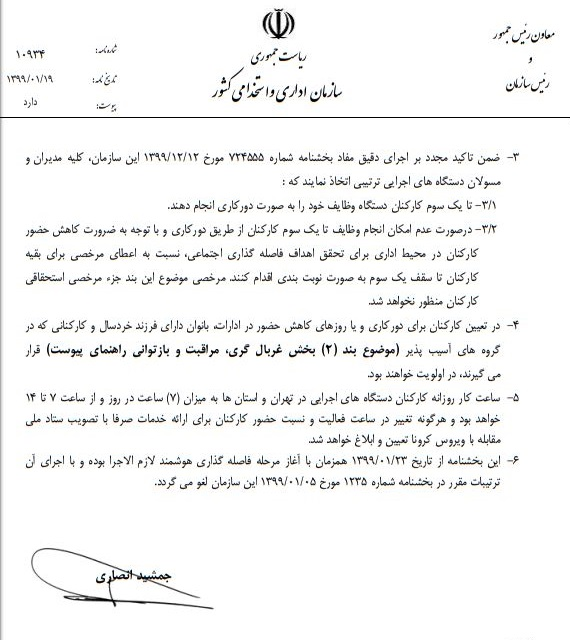 معاون رئیس جمهور
و
رئیس سازمان
ریاست جمهوری
سازمان اداری و استخدامی کشور
شماره نامه: ۱۰۹۳۴
تاریخ نامه: ۱۳۹۹/۰۱/۱۹
پیوست: دارد
۳- ضمن تاکید مجدد بر اجرای دقیق مفاد بخشنامه شماره ۷۲۴۵۵۵ مورخ ۱۳۹۹/۱۲/۱۲ این سازمان، کلیه مدیران و
مسولان دستگاه های اجرایی ترتیبی اتخاذ نمایند که :
۳/۱- تا یک سوم کارکنان دستگاه وظایف خود را به صورت دورکاری انجام دهند.
۳/۲- درصورت عدم امکان انجام وظایف تا یک سوم کارکنان از طریق دورکاری و با توجه به ضرورت کاهش حضور
کارکنان در محیط اداری برای تحقق اهداف فاصله گذاری اجتماعی، نسبت به اعطای مرخصی برای بقیه
کارکنان تا سقف یک سوم به صورت نوبت بندی اقدام کنند. مرخصی موضوع این بند جزء مرخصی استحقاقی
کارکنان منظور نخواهد شد.
۴- در تعیین کارکنان برای دورکاری و یا روزهای کاهش حضور در ادارات، بانوان دارای فرزند خردسال و کارکنانی که در
گروه های آسیب پذیر (موضوع بند (۲) بخش غربال گری، مراقبت و بازتوانی راهنمای پیوست) قرار
می گیرند، در اولویت خواهند بود.
۵- ساعت کار روزانه کارکنان دستگاه های اجرایی در تهران و استان ها به میزان (۷) ساعت در روز و از ساعت ۷ تا ۱۴
خواهد بود و هرگونه تغییر در ساعت فعالیت و نسبت حضور کارکنان برای ارائه خدمات صرفا با تصویب ستاد ملی
مقابله با ویروس کرونا تعیین و ابلاغ خواهد شد.
۶- این بخشنامه از تاریخ ۱۳۹۹/۰۱/۲۳ همزمان با آغاز مرحله فاصله گذاری هوشمند لازم الاجرا بوده و با اجرای آن
ترتیبات مقرر در بخشنامه شماره ۱۲۳۵ مورخ ۱۳۹۹/۰۱/۰۵ این سازمان لغو می گردد.
جمشید انصاری